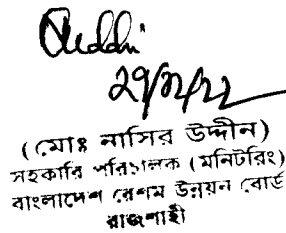 ২৭/৭/২২
(মোঃ নাসির উদ্দীন)
সহকারি পরিচালক (মনিটরিং)
বাংলাদেশ রেশম উন্নয়ন বোর্ড
রাজশাহী